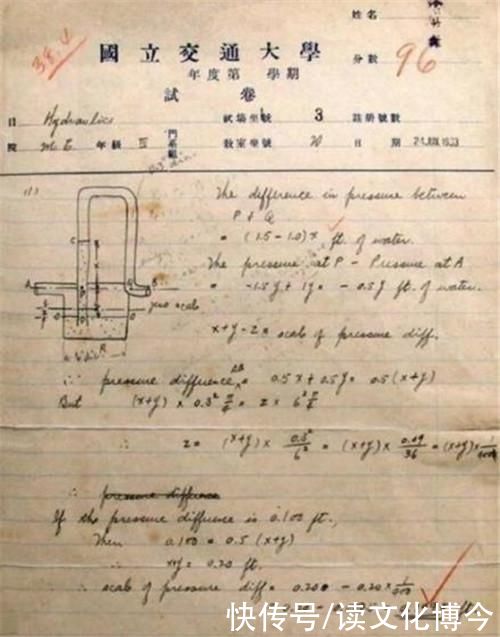 姓名
38.4
國立交通大學
分數 96
年度第 學期
試卷
目 Hydraulics 試場坐號 3 註冊號數
院 M.E. 年級 III 門系組 教室坐號 20 日期 24 JUN 1933
(1)
The difference in pressure between
P & Q
= (1.5-1.0)x ft. of water.
The pressure at P - Pressure at A
= -1.5y + 1y = -0.5y ft. of water.
x+y-z = scale of pressure diff.
C
A
B
zero scale
R
∴ pressure difference AB = 0.5x + 0.5y = 0.5(x+y)
But (x+y) × 0.3² π/4 = z × 6² π/4
∴ z = (x+y) × 0.3²/6² = (x+y) × 0.09/36 = (x+y) × 1/400
∴ pressure difference
If the pressure difference is 0.100 ft.,
Then 0.100 = 0.5 (x+y)
∴ x+y = 0.20 ft.
∴ scale of pressure diff = 0.200 - 0.20 × 1/400
快传号/读文化博今